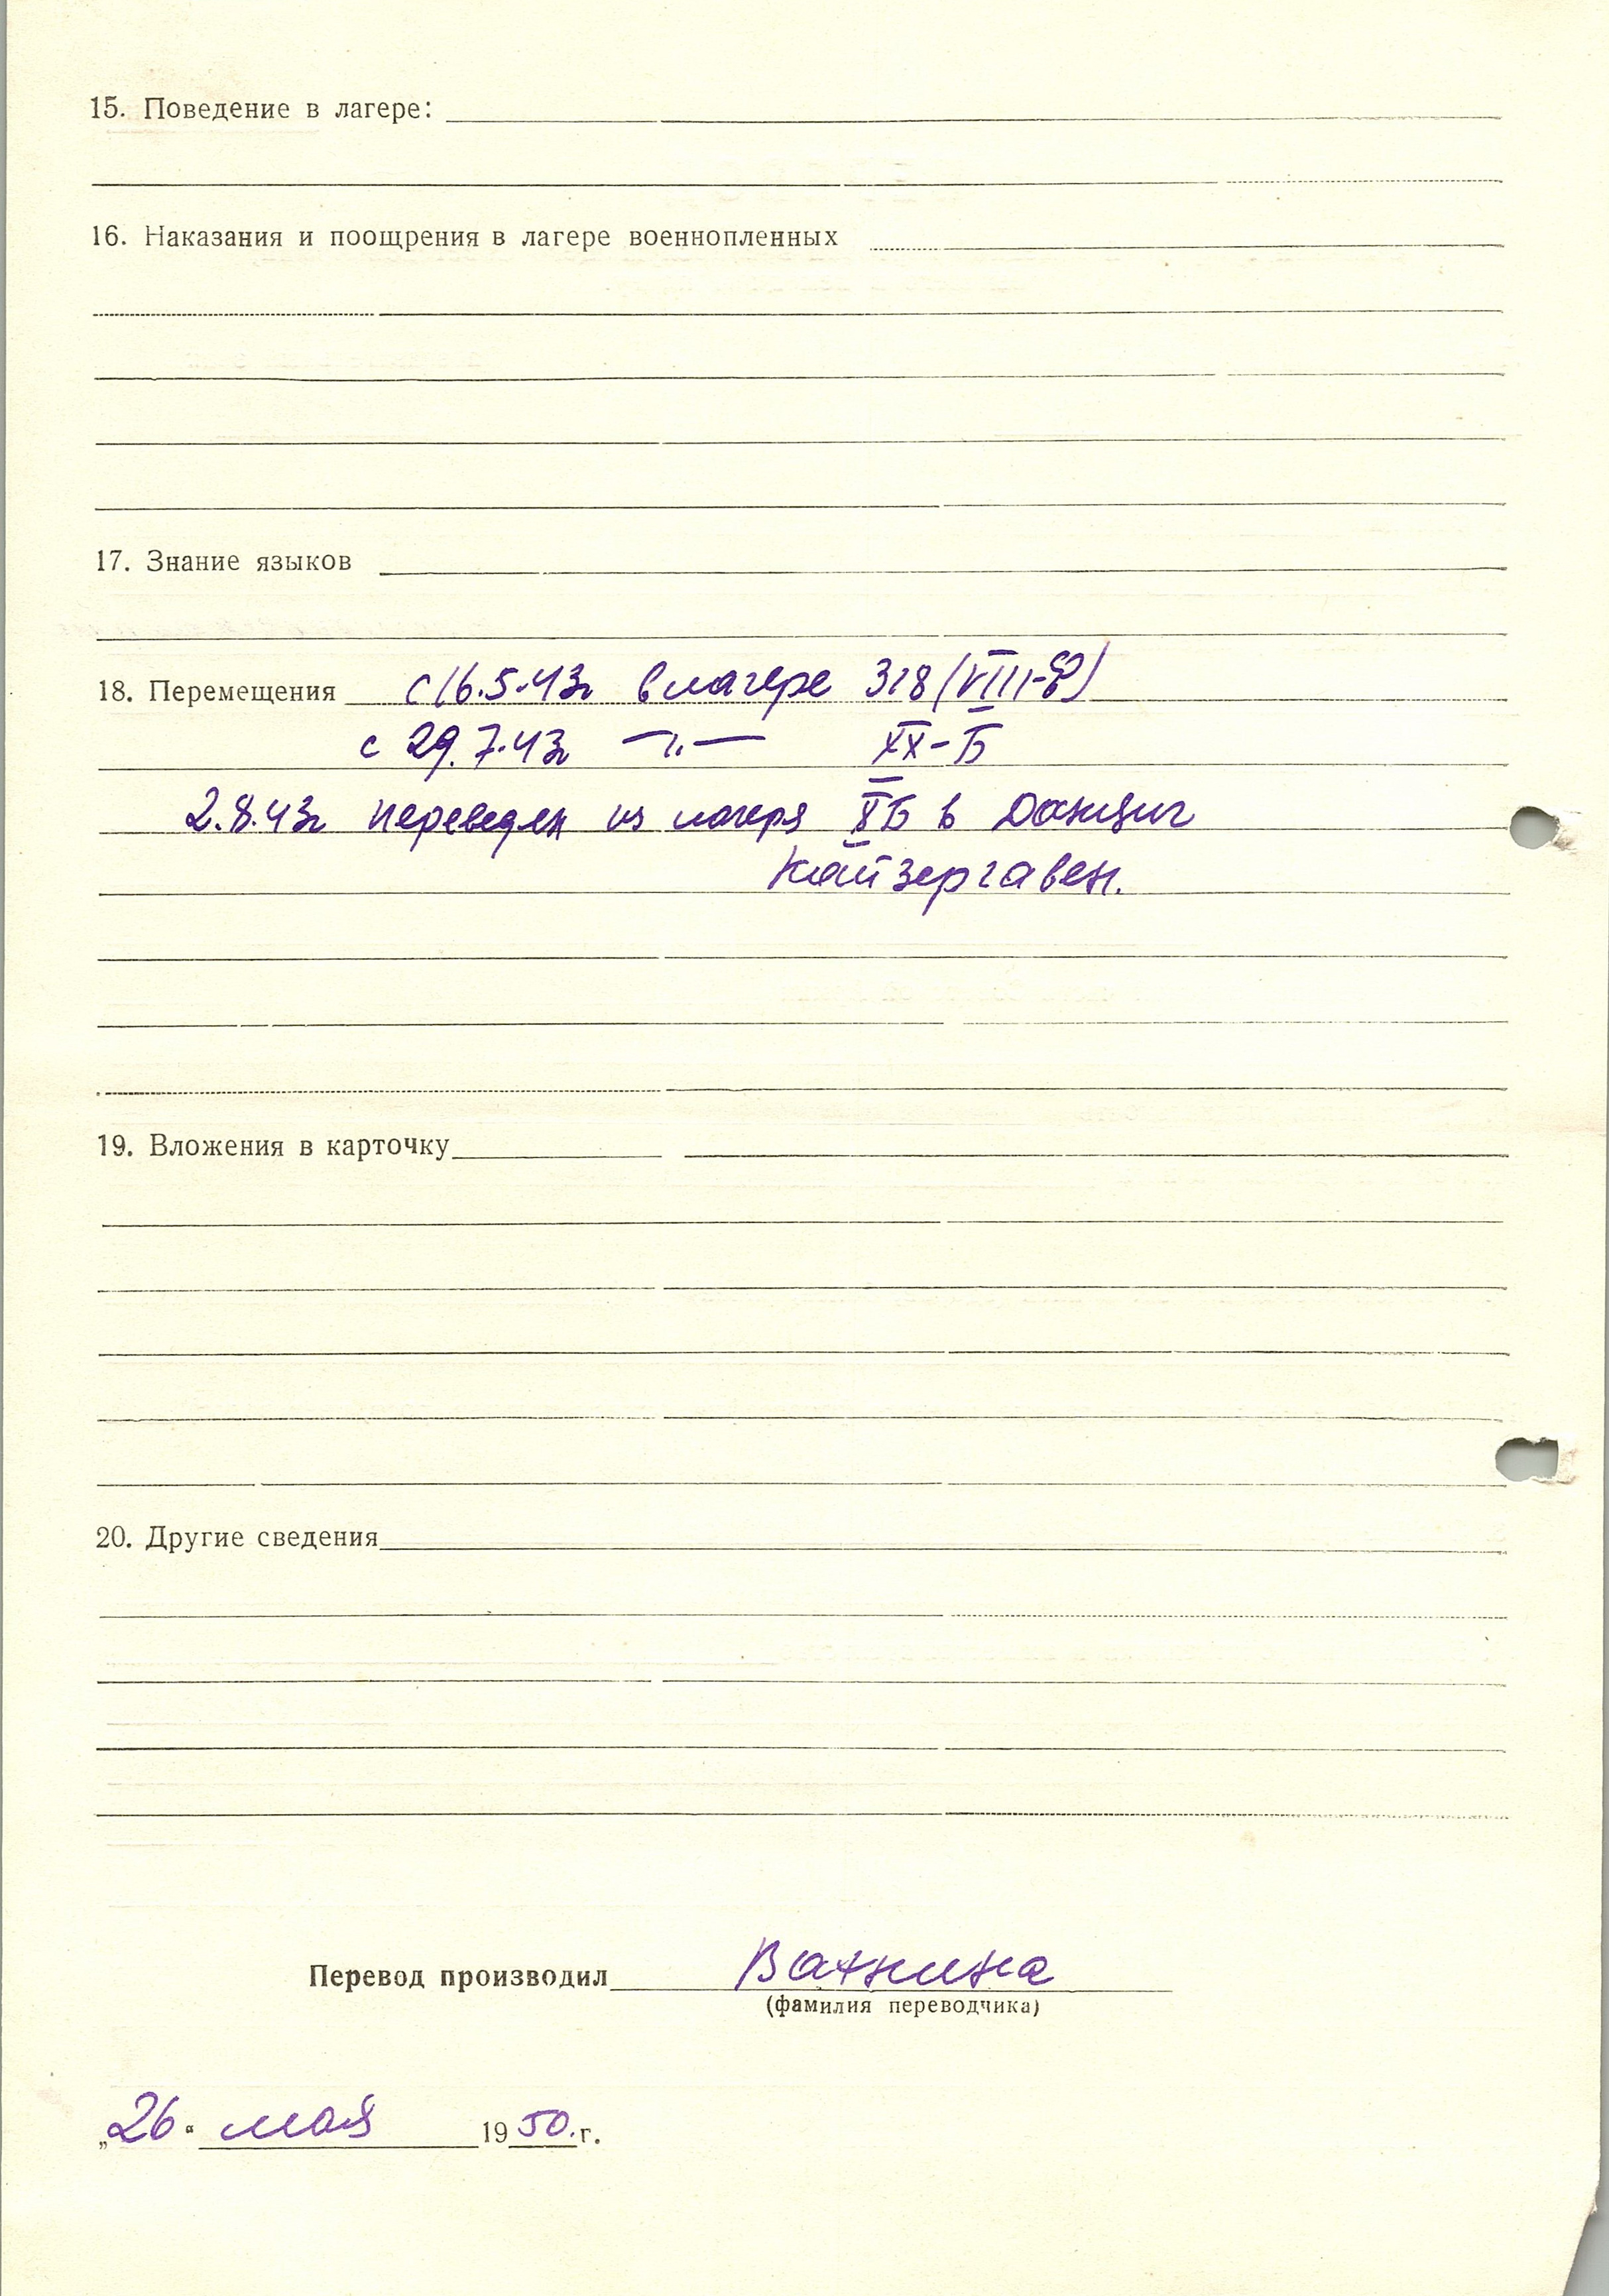 15. Поведение в лагере:
16. Наказания и поощрения в лагере военнопленных
17. Знание языков
18. Перемещения с 16.5.43г в лагере 318 (VIII-Ф)
с 29.7.43г —„— XX-Б
2.8.43г переведен из лагеря XXБ в Данциг
Кайзергавен.
19. Вложения в карточку
20. Другие сведения
Перевод производил Ванина
(фамилия переводчика)
„26“ мая 1950.г.